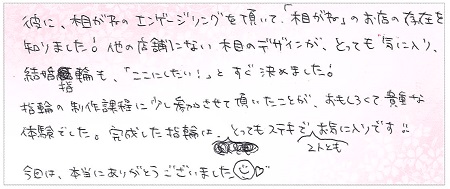 彼に、相がねのエンゲージリングを頂いて、「相がね」のお店の存在を
知りました！他の店舗にない木目のデザインが、とっても気に入り、
結婚指輪も、「ここにしたい！」とすぐ決めました！
指輪の制作課程に少し参加させて頂いたことが、おもしろくて貴重な
体験でした。完成した指輪は、とってもステキでお気に入りです!!
2人とも
今回は、本当にありがとうございました